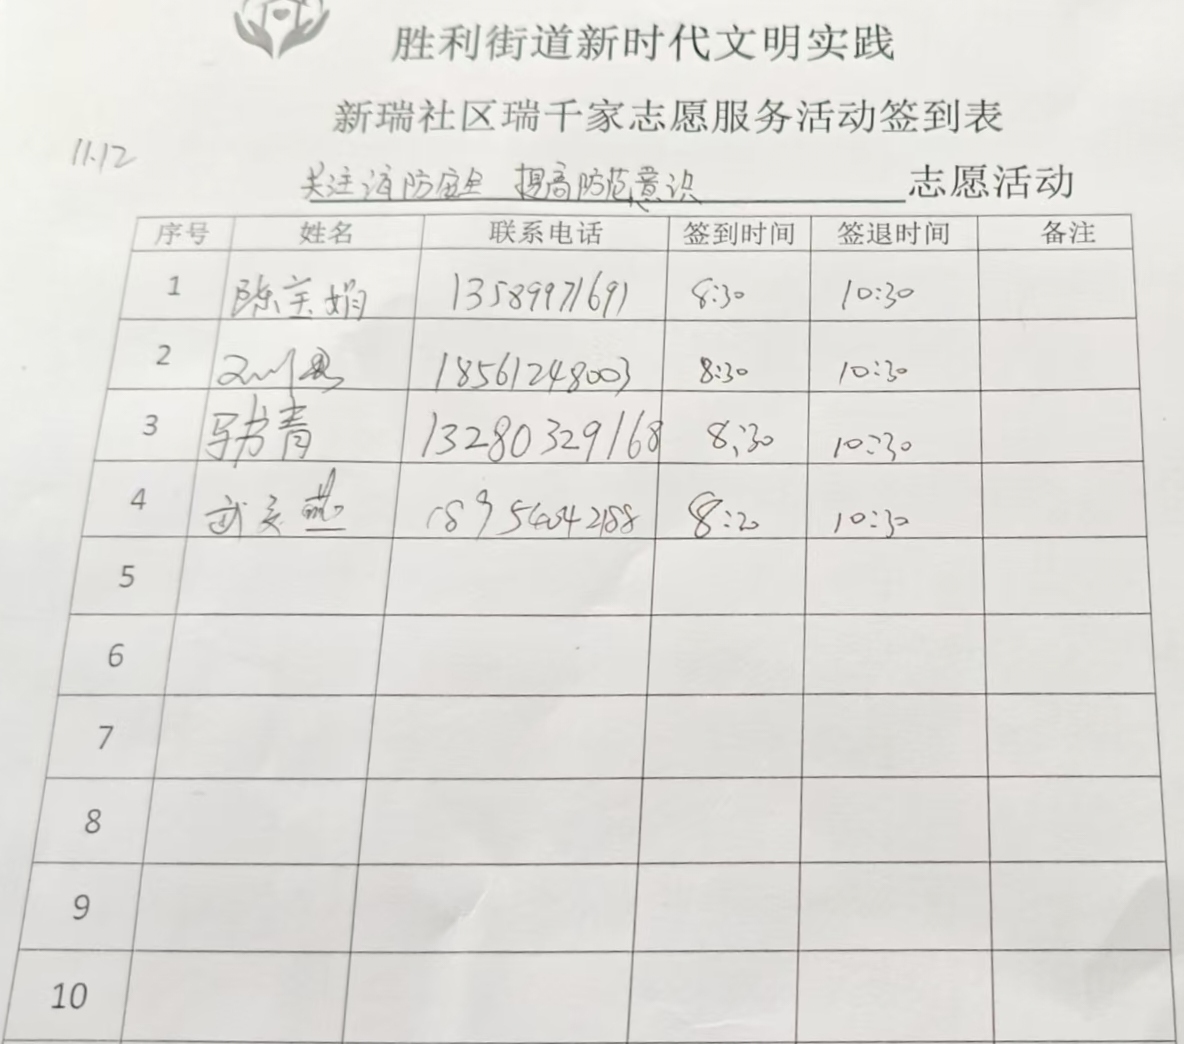 胜利街道新时代文明实践
新瑞社区瑞千家志愿服务活动签到表
11.12
关注消防安全 提高防范意识 志愿活动
序号 姓名 联系电话 签到时间 签退时间 备注
1 陈宝娟 13589971691 8:30 10:30
2 18561248003 8:30 10:30
3 马书青 13280329168 8:30 10:30
4 武 燕 18954042188 8:20 10:30
5
6
7
8
9
10